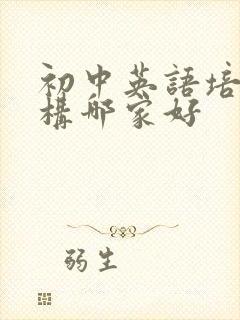 初中英語培
構哪家好
弱生